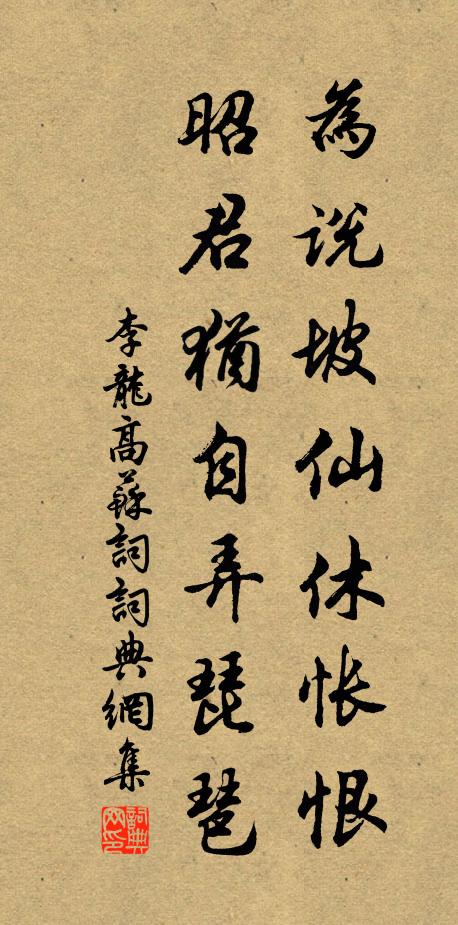 為説坡仙休悵恨
昭君猶自弄琵琶
李龍高蘇詞詞典網集
詞典網印